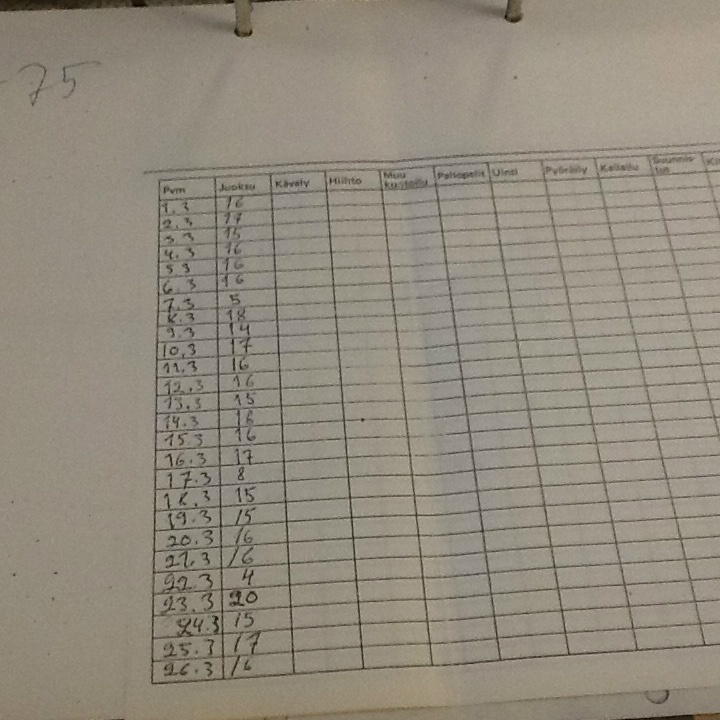 75
Pvm Juoksu Kävely Hiihto Muu kuntoilu Pallopelit Uinti Pyöräily Keilailu Suunnis-tus
1.3 16
2.3 17
3.3 15
4.3 16
5.3 16
6.3 16
7.3 5
8.3 18
9.3 14
10.3 17
11.3 16
12.3 16
13.3 15
14.3 18
15.3 16
16.3 17
17.3 8
18.3 15
19.3 15
20.3 16
21.3 16
22.3 4
23.3 20
24.3 15
25.3 17
26.3 16